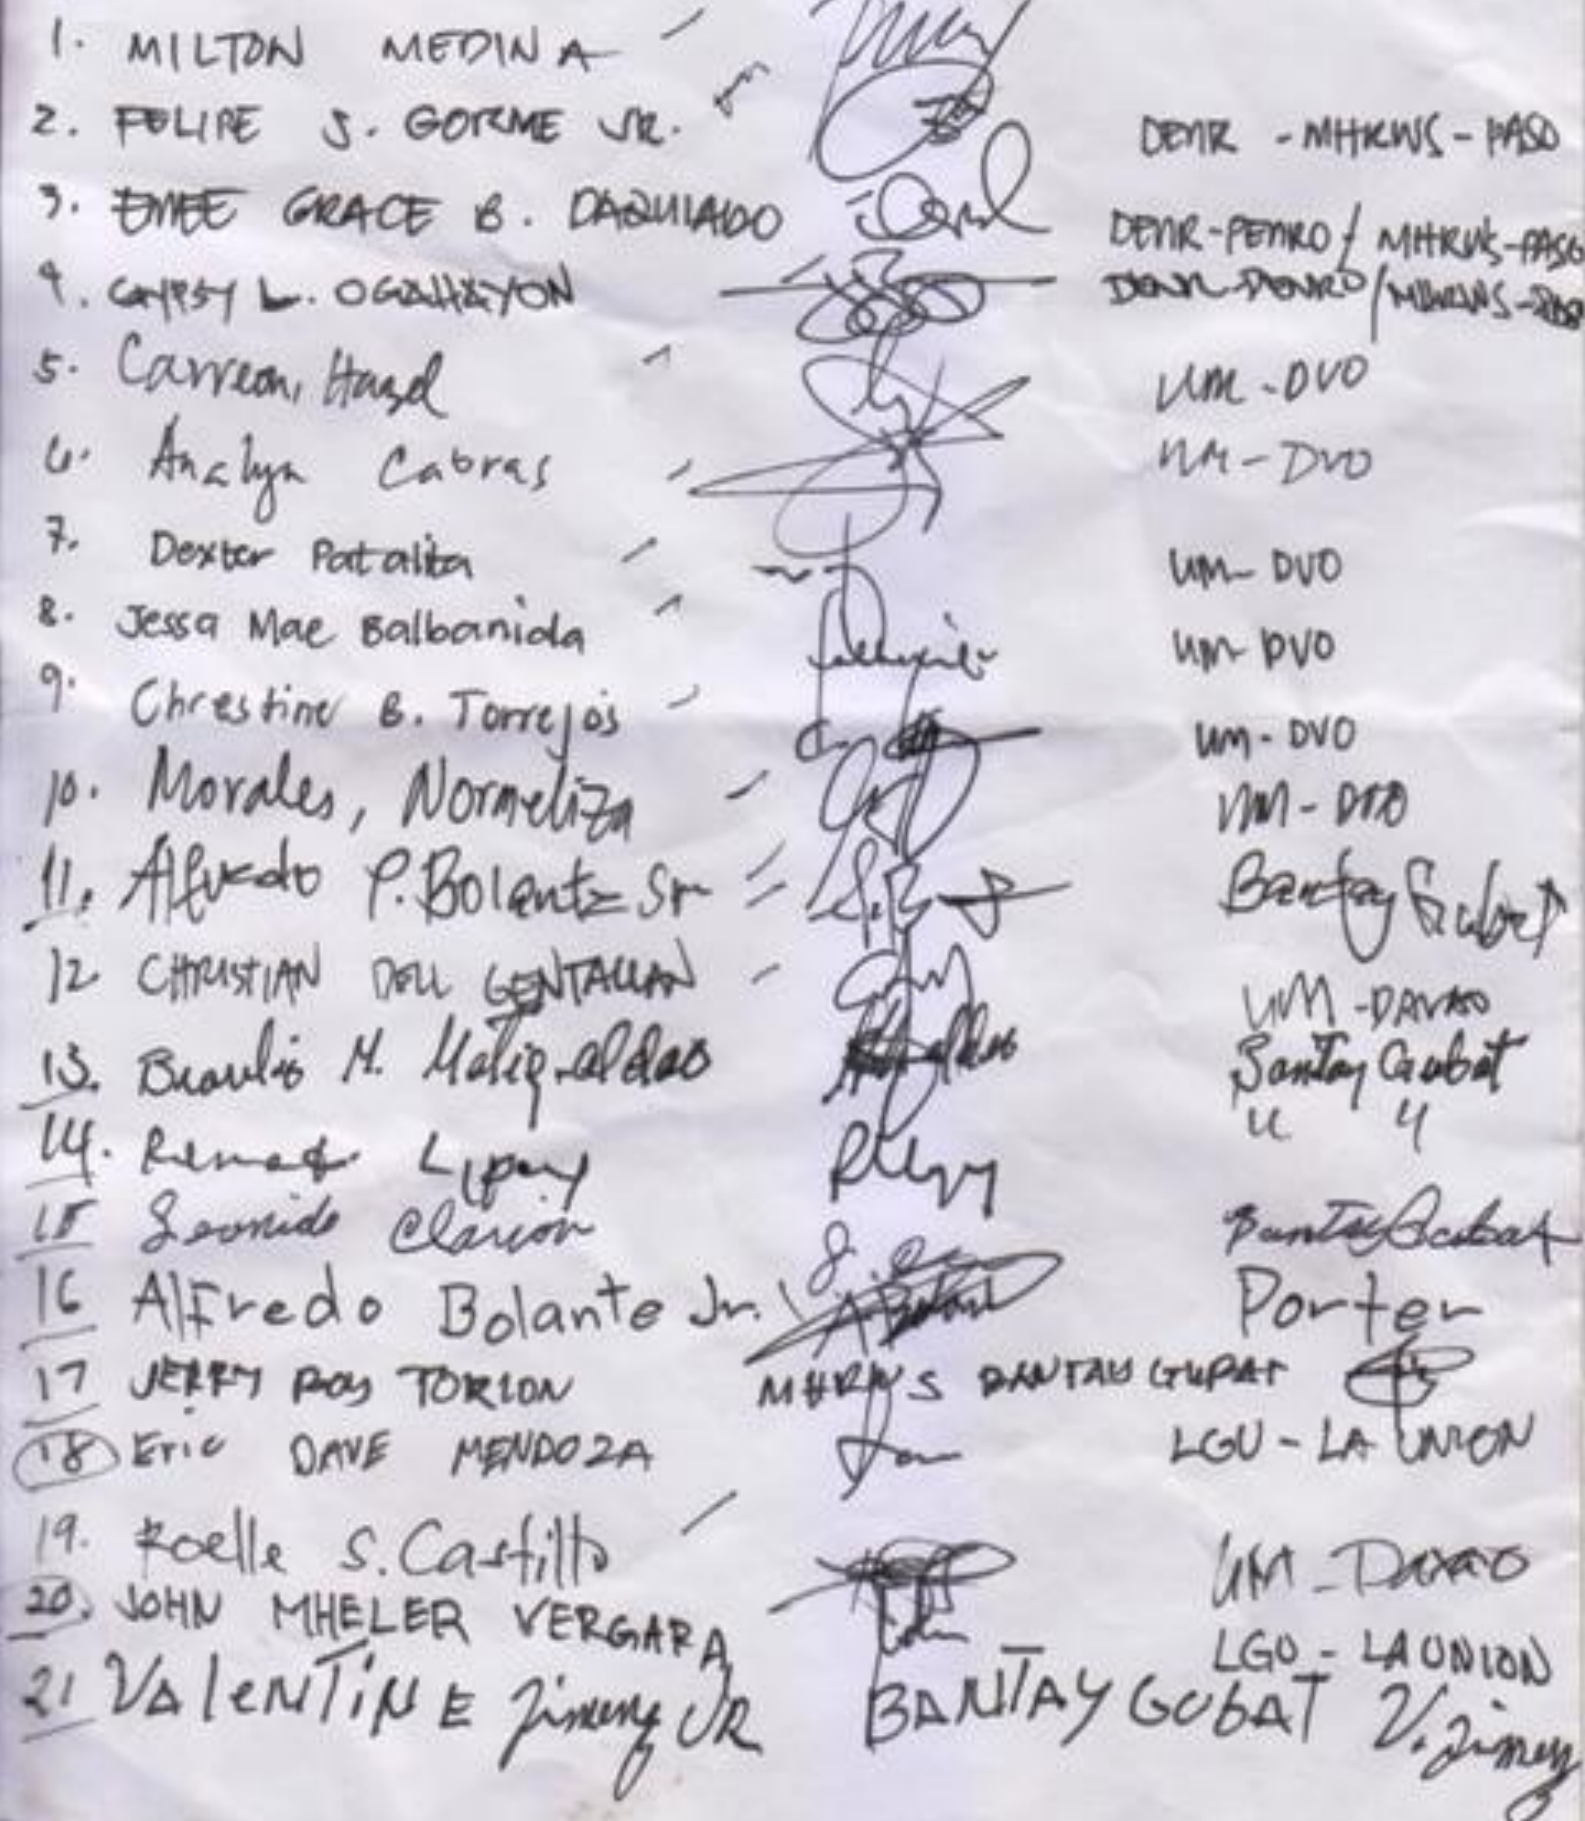 1. MILTON MEDINA
2. FELIPE S. GORME JR. DENR - MHRWS - PASO
3. EMEE GRACE B. DAQUIADO DENR-PENRO / MHRWS-PASO
4. GYPSY L. OGAHAYON DENR-PENRO/MHRWS-
5. Carreon, Hazel UM - DVO
6. Analyn Cabras UM - DVO
7. Dexter Patalita UM- DVO
8. Jessa Mae Balbanida UM- DVO
9. Chrestine B. Torrejos UM - DVO
10. Morales, Normeliza UM - DVO
11. Alfredo P. Bolante Sr Bantay Gubat
12 CHRISTIAN DELL GENTALLAN UM - DAVAO
13. Braulio M. Bantay Gubat
14. " "
15 Leonido Clarion Bantay Gubat
16 Alfredo Bolante Jr. Porter
17 JERRY ROY TORION MHRWS BANTAY GUBAT
18 Eric DAVE MENDOZA LGU - LA UNION
19. Roelle S. Castillo UM - Davao
20. JOHN MHELER VERGARA LGU - LA UNION
21 VALENTINE Jimenez JR BANTAY GUBAT V. Jimenez